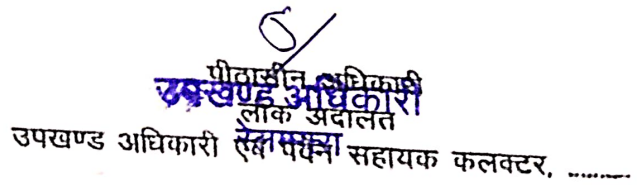 पीठासीन अधिकारी
उपखण्ड अधिकारी
लोक अदालत
उपखण्ड अधिकारी एवं पदेन सहायक कलक्टर, ........